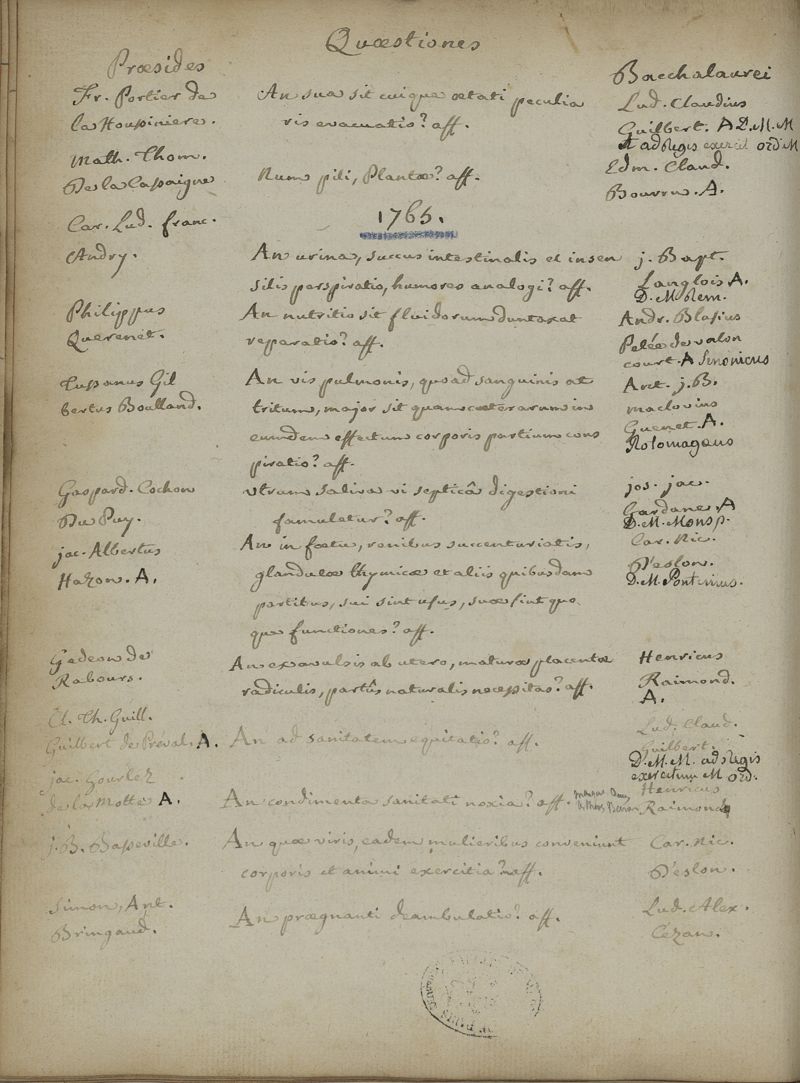 Quæstiones
Præsides
Bacchalaurei
Fr. Portier de
la Houssiniere.
An sua sit cuique ætati peculia
ris evacuatio? aff.
Lud. Claudius
Guilbert. A D. M. M
et ad Regis exercit ord M
Math. Thom.
De la Cassaigne
Num pili, Plantæ? aff.
Edm. Claud.
Bourru. A.
1765.
Car. Lud. franc.
Andry.
An urina, succus intestinalis et insen
silis perspiratio, humores analogi? aff.
j. Bapt.
Langlois A.
D. M Rem.
Philippus
Querenet.
An nutritio sit fluidorum duntaxat
reparatio? aff.
Andr. Blasius
Pelée de valon
court. A Senonicus
Tussanus Gil
bertus Boulland.
An vis pulmonis, quoad sanguinis at
tritum, major sit quam cæterarum in
eumdem effectum corporis partium cons
piratio? aff.
Ant. j. B.
maclovius
Guenet. A.
Rotomagæus
Gaspard. Cochon
Du Puy.
utrum saliva vi septicâ digestioni
famuletur? aff.
jos. jac.
Gardane A
D. M. Monsp.
jac. Albertus
Hazon. A.
An in fœtu, renibus succenturiatis,
glandulæ thymicæ et aliis quibusdam
partibus, sui sint usus, suæ sint quo
que functiones? aff.
Car. Nic.
D'eslon.
D. M. Pontinus.
Gedeon de
Rabours.
An ex avulsis ab utero, maturæ placentæ
radiculis, partûs naturalis necessitas? aff.
Henricus
Raimond.
A.
Cl. Th. Guill.
Guilbert de Préval. A.
An ad sanitatem equitatio? aff.
Lud. Claud.
Guilbert.
D. M. M. ad Regis
exercitum M ord.
jac. Gourlez
de la Motte A.
An condimenta sanitati noxia? aff.
Henricus
Raimond
j. B. Basseville.
An quæ viris, eadem mulieribus conveniunt
corporis et animi exercitia? aff.
Car. Nic.
D'eslon.
Simon, Ant.
Bringaud.
An prægnanti deambulatio? aff.
Lud. Alex.
Cézan.